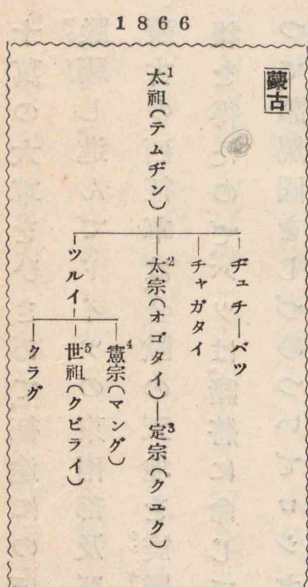 1866
蒙古
太祖(テムヂン)1
ヂュチ―バツ
チャガタイ
太宗(オゴタイ)2―定宗(クユク)3
ツルイ
憲宗(マング)4
世祖(クビライ)5
クラグ